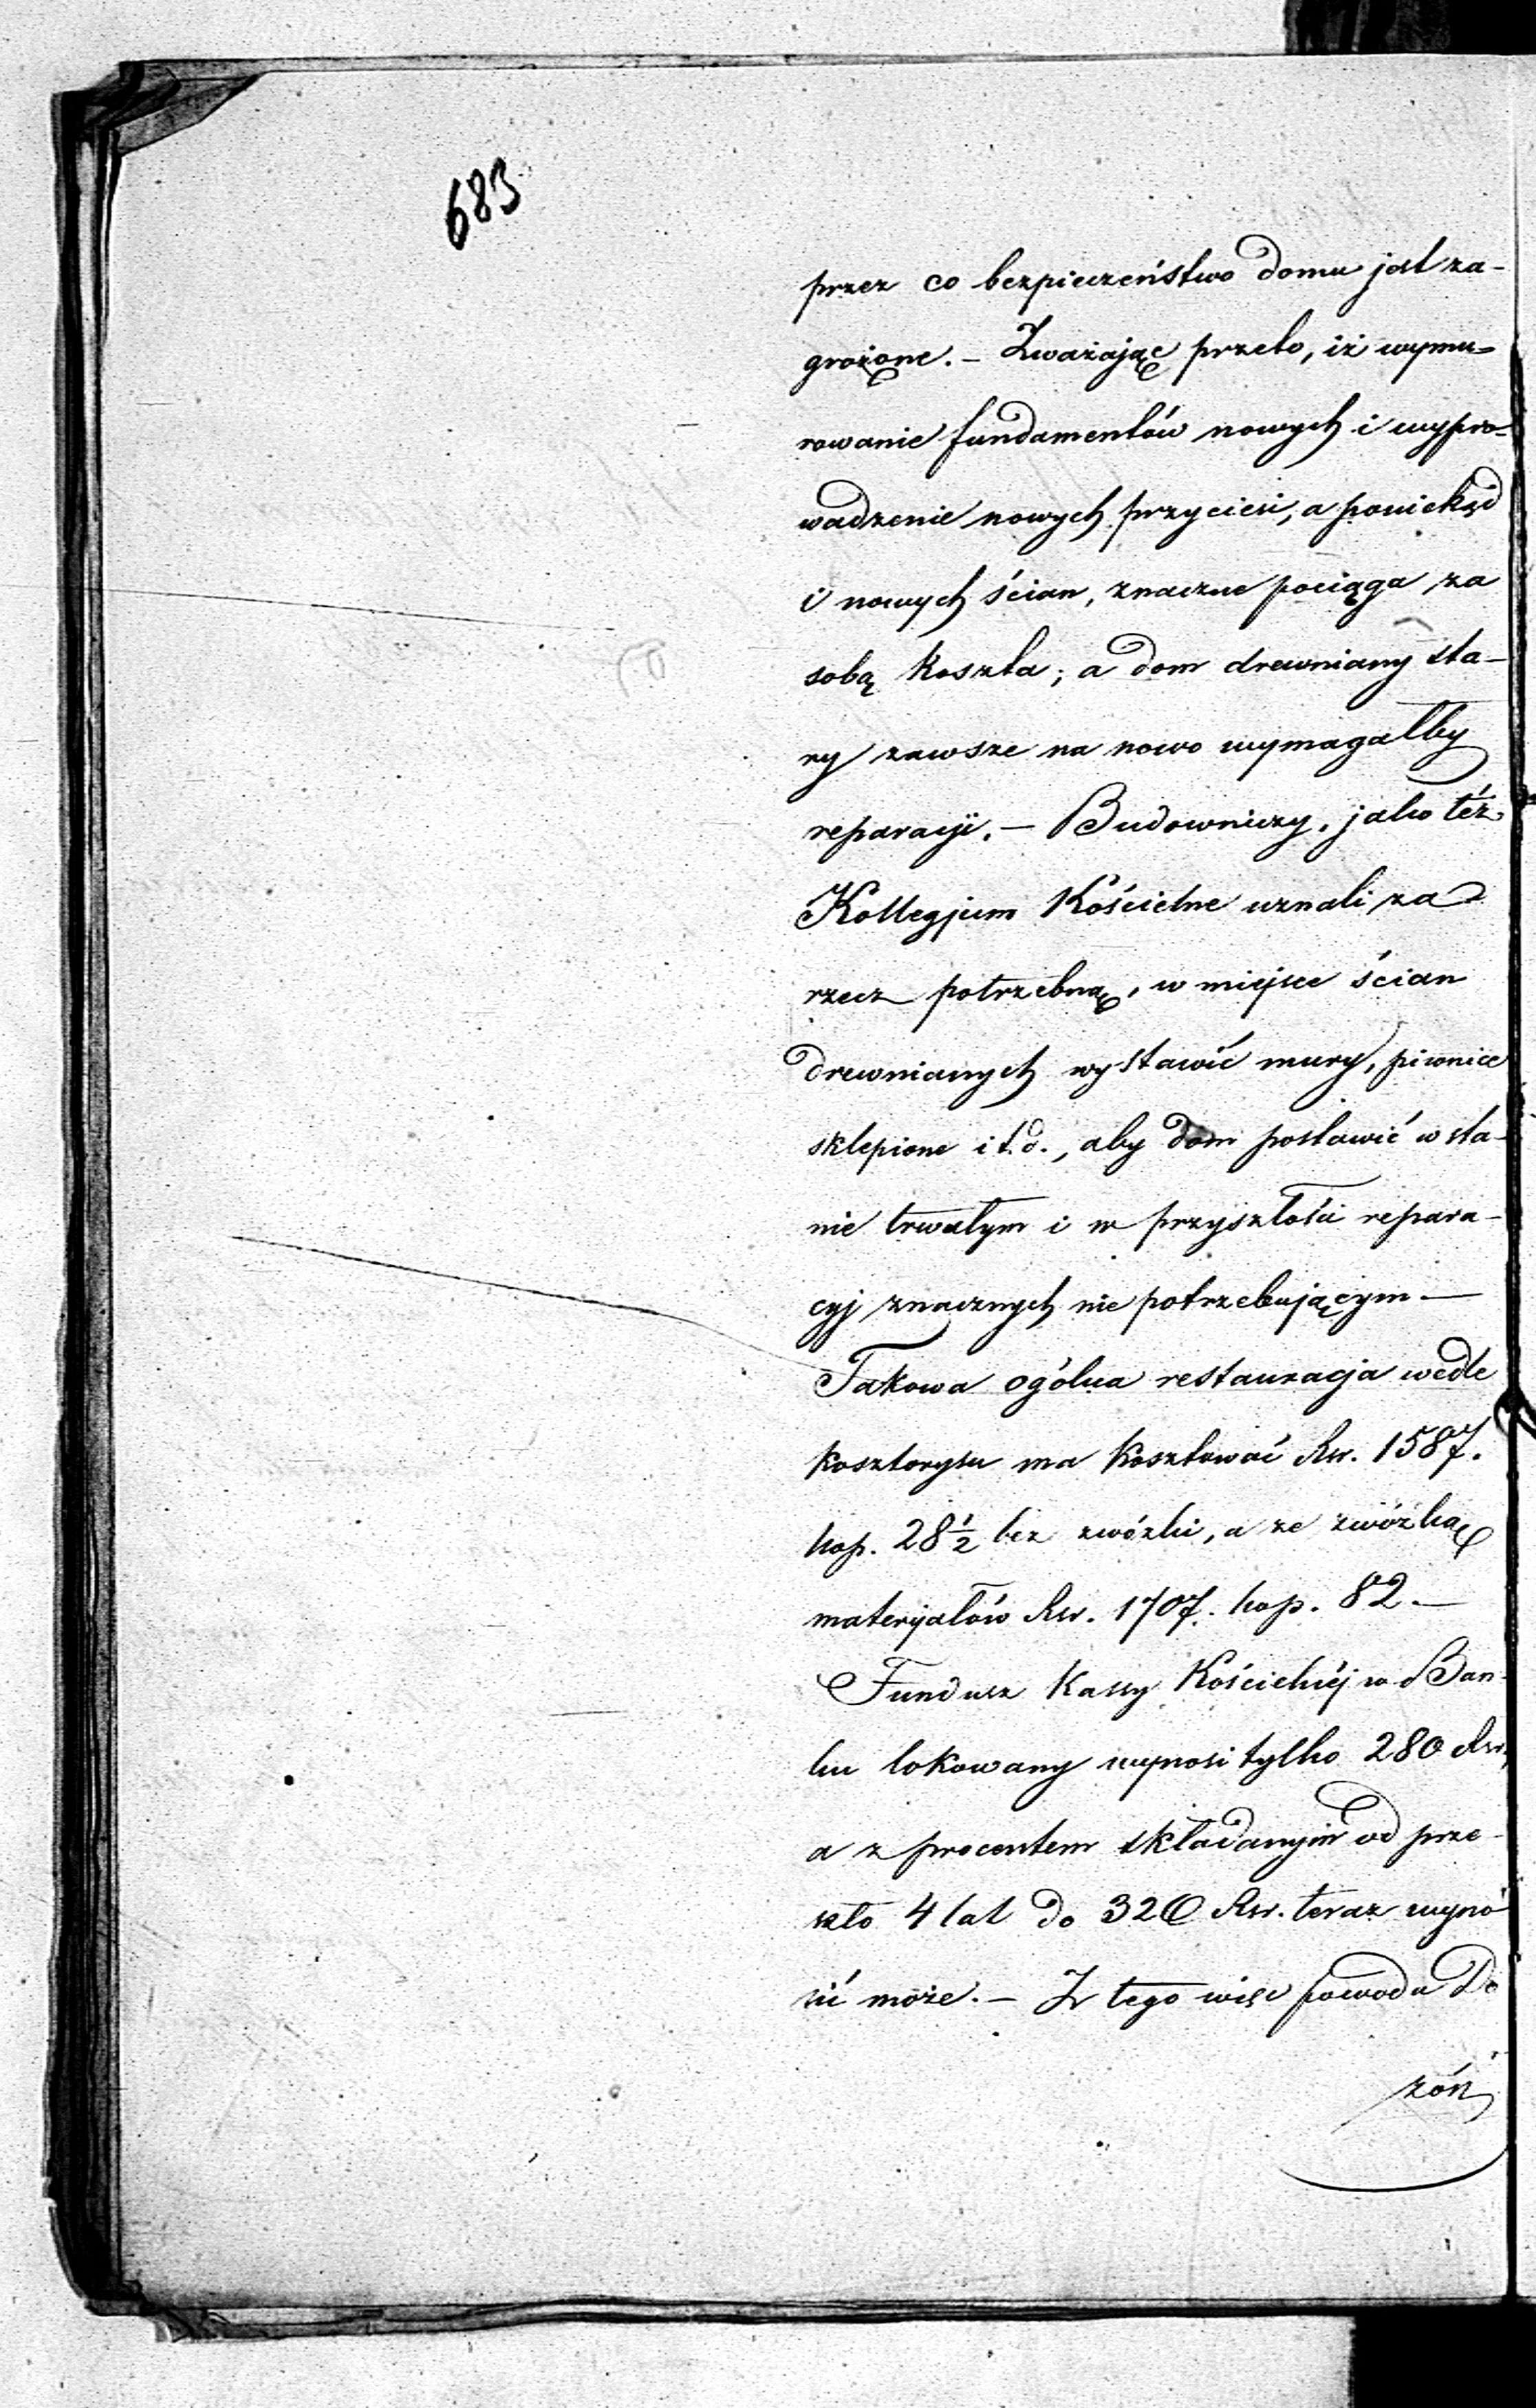 683
przez co bezpieczeństwo domu jest za-
grożone. – Zważając przeto, iż wymu-
rowanie fundamentów nowych i wypro-
wadzenie nowych przyciesi, a poniekąd
i nowych ścian, znaczne pociąga za
sobą koszta; a dom drewniany sta-
ry zawsze na nowo wymagałby
reparacji. – Budowniczy, jako téż
Kollegjum Kościelne uznali za
rzecz potrzebną, w miejsce ścian
drewnianych wystawić mury, piwnice
sklepione i t.d., aby dom postawić w sta-
nie trwałym i w przyszłości repara-
cyj znacznych nie potrzebującym —
Takowa ogólna restauracja wedle
kosztorysu ma kosztować Rsr. 1587.
kop. 28½ bez zwózki, a ze zwózką
materjałów Rsr. 1707. kop. 82. —
Fundusz Kassy Kościelnéj w Ban-
ku lokowany wynosi tylko 280 Rsr,
a z procentem składanym od prze-
szło 4 lat do 320 Rsr. teraz wyno-
sić może. – Z tego więc powodu Do
zór